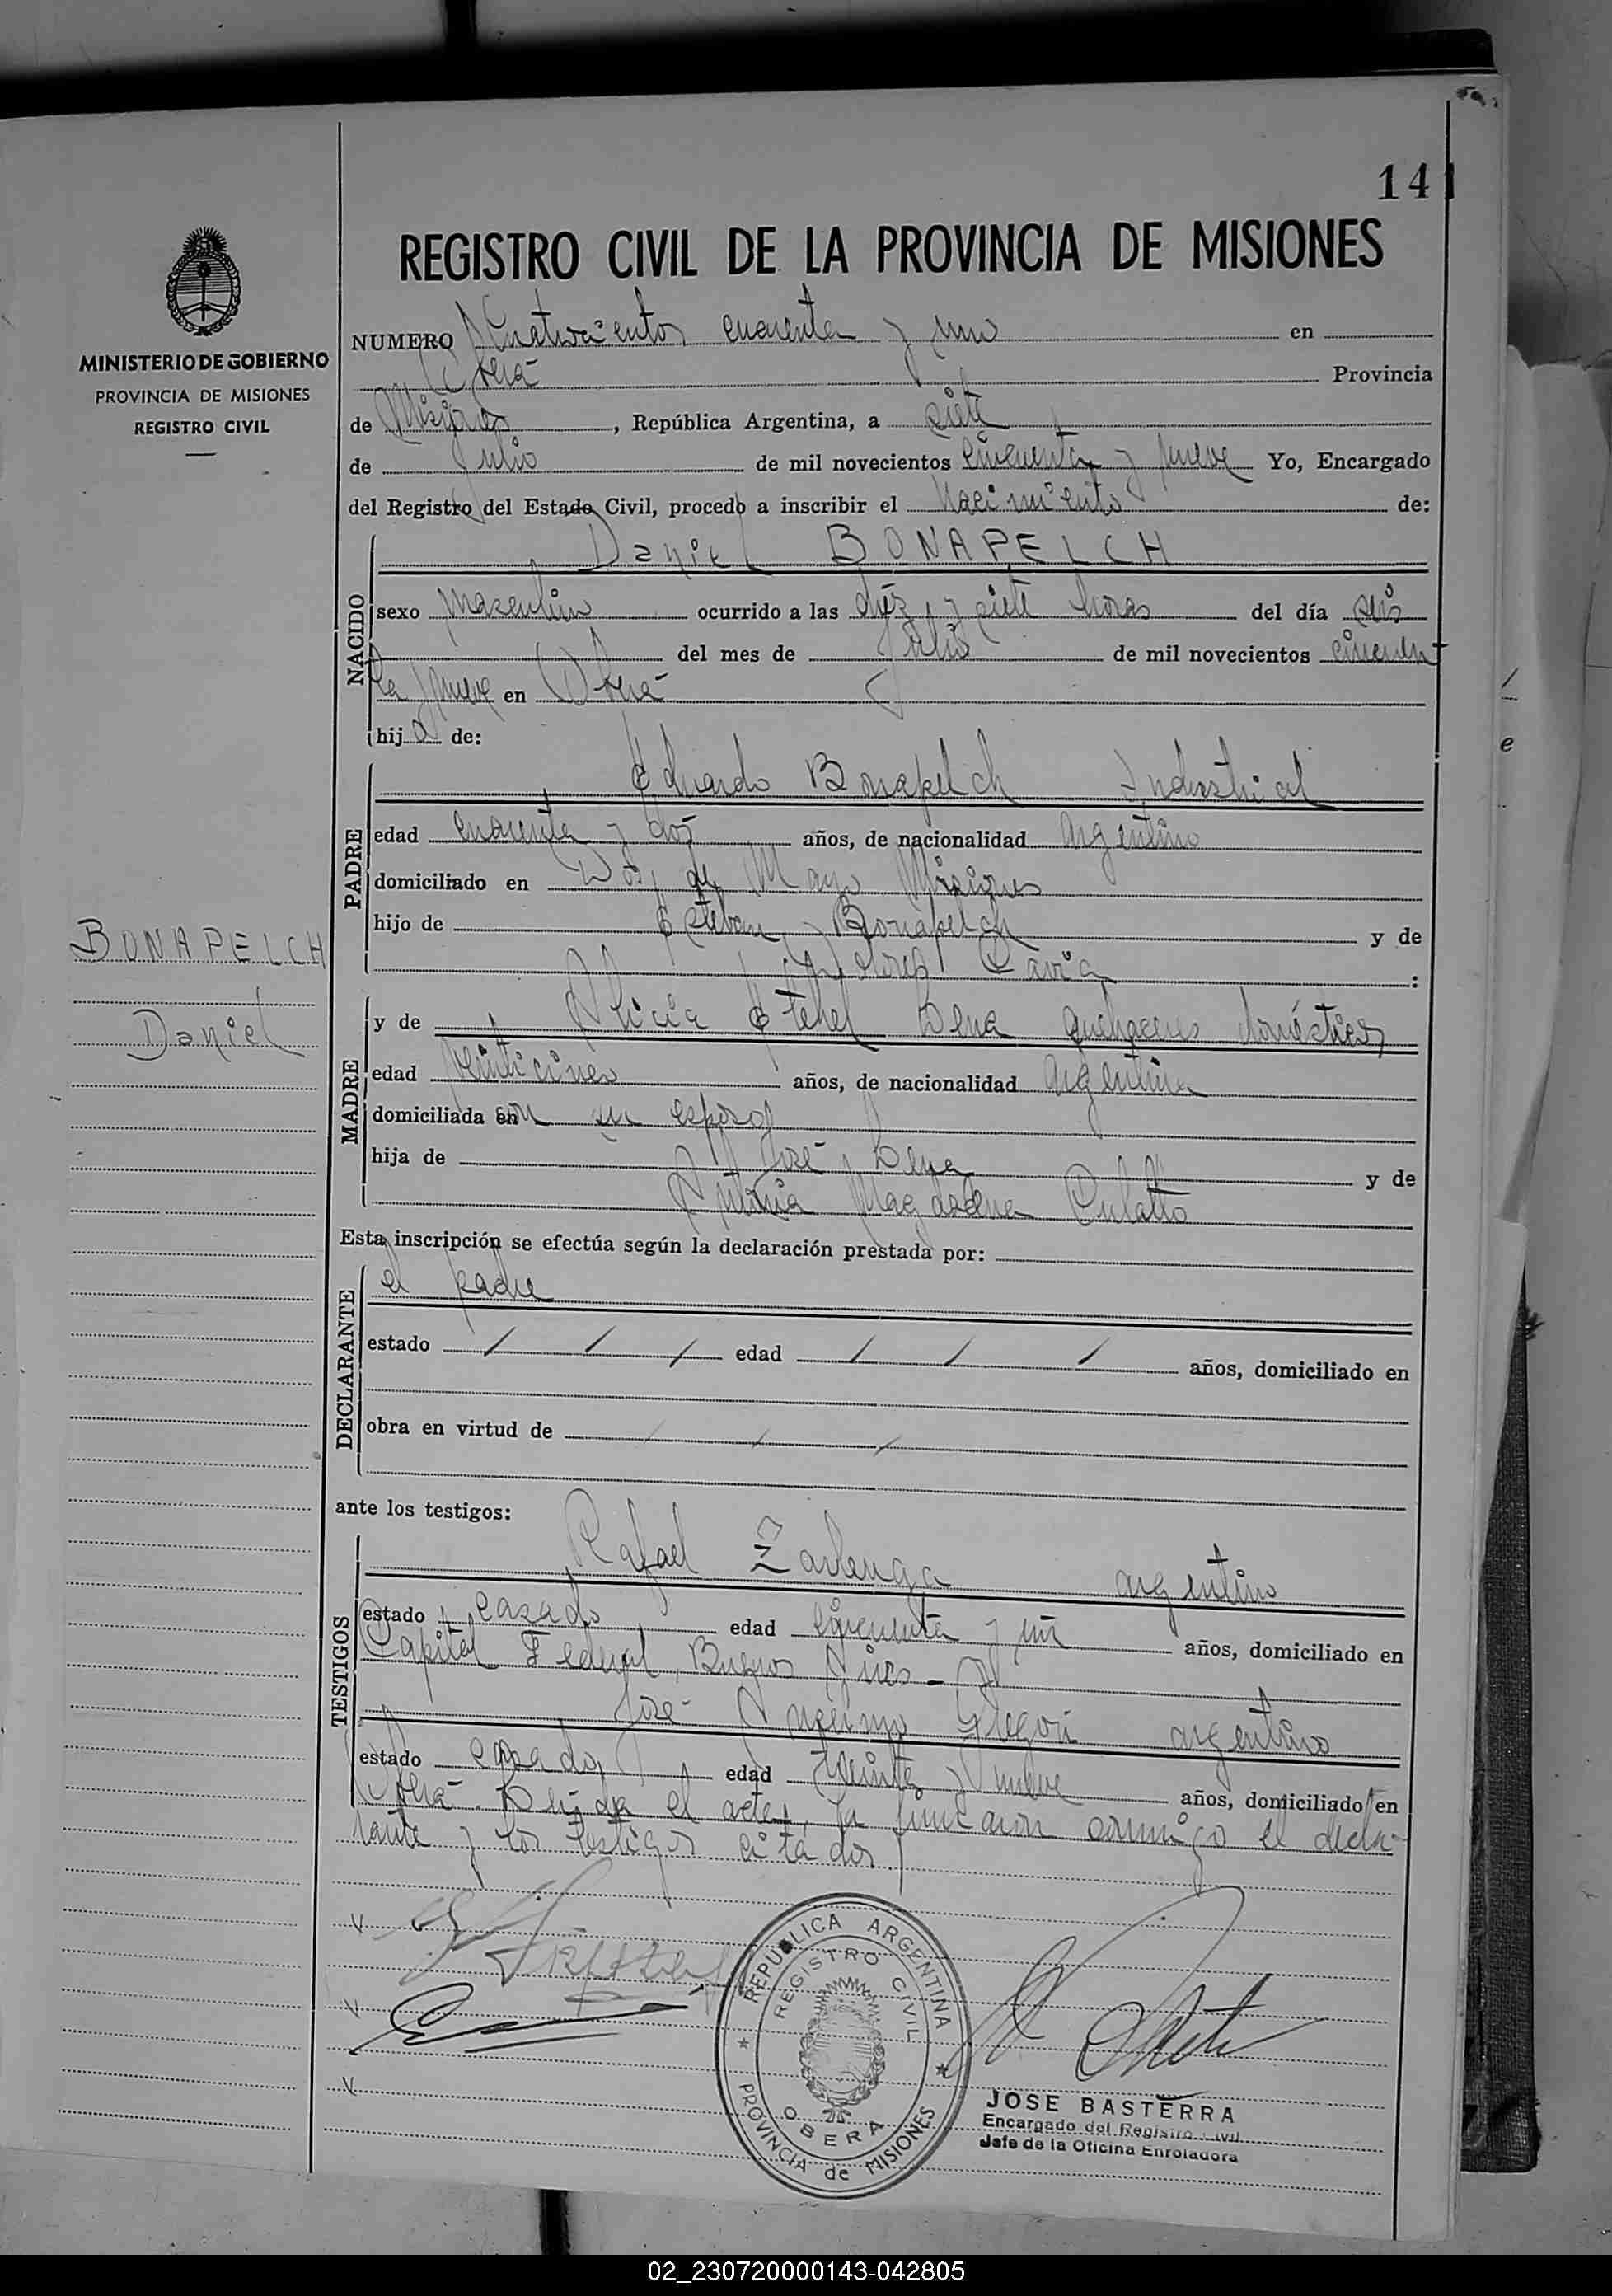 141
REGISTRO CIVIL DE LA PROVINCIA DE MISIONES
MINISTERIO DE GOBIERNO
PROVINCIA DE MISIONES
REGISTRO CIVIL
NUMERO Cuatrocientos cuarenta y uno en
Oberá Provincia
de Misiones, República Argentina, a siete
de Julio de mil novecientos cincuenta y nueve Yo, Encargado
del Registro del Estado Civil, procedo a inscribir el Nacimiento de:
NACIDO
Daniel BONAPELCH
sexo masculino ocurrido a las diez y siete horas del día seis
del mes de Julio de mil novecientos cincuen
ta y nueve en Oberá
hijo de:
PADRE
Eduardo Bonapelch Industrial
edad cuarenta y dos años, de nacionalidad argentino
domiciliado en Dos de Mayo Misiones
hijo de Esteban Bonapelch y de
Dolores :
BONAPELCH
Daniel
MADRE
y de Alicia Ethel Dena quehaceres domésticos
edad veinticinco años, de nacionalidad argentina
domiciliada con su esposo
hija de José Dena y de
Magdalena Culatto
Esta inscripción se efectúa según la declaración prestada por:
DECLARANTE
el padre
estado / / / edad / / / años, domiciliado en
obra en virtud de / / /
ante los testigos:
TESTIGOS
Rafael Zarlenga argentino
estado casado edad cincuenta y un años, domiciliado en
Capital Federal, Buenos Aires -
José Anselmo Gregori argentino
estado casado edad treinta y nueve años, domiciliado en
Oberá. Leída el acta, la firmaron conmigo el decla-
rante y los testigos citados
REPUBLICA ARGENTINA
REGISTRO CIVIL
OBERA
PROVINCIA de MISIONES
JOSE BASTERRA
Encargado del Registro Civil
Jefe de la Oficina Enroladora
02_230720000143-042805